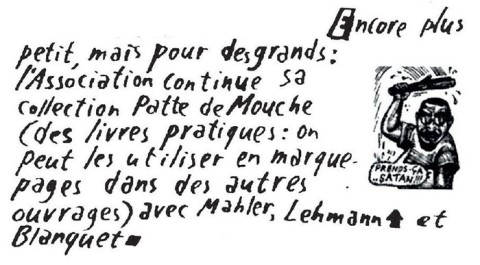 Encore plus
petit, mais pour des grands :
l'Association continue sa
collection Patte de Mouche
(des livres pratiques : on
peut les utiliser en marque-
pages dans des autres
ouvrages) avec Mahler, Lehmann et
Blanquet
PRENDS-ÇA
SATAN!!!